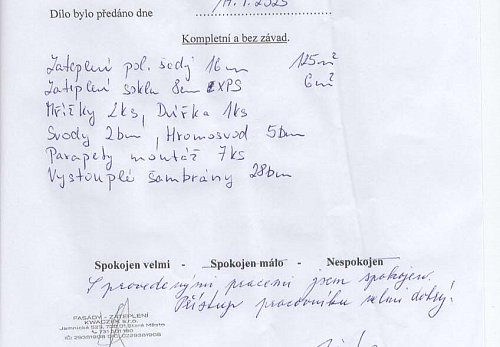 Dílo bylo předáno dne 14.1.2025
Kompletní a bez závad.
Zateplení pol. šedý 16cm 125m²
Zateplení soklu 8cm XPS 6m²
Mřížky 2ks, Dvířka 1ks
Svody 2bm, Hromosvod 5bm
Parapety montáž 7ks
Vystouplé šambrány 28bm
Spokojen velmi - Spokojen málo - Nespokojen
S provedenými pracemi jsem spokojen.
Přístup pracovníku velmi dobrý!
FASÁDY - ZATEPLENÍ
KWACZEK s.r.o.
Jamnická 529, 738 01 Staré Město